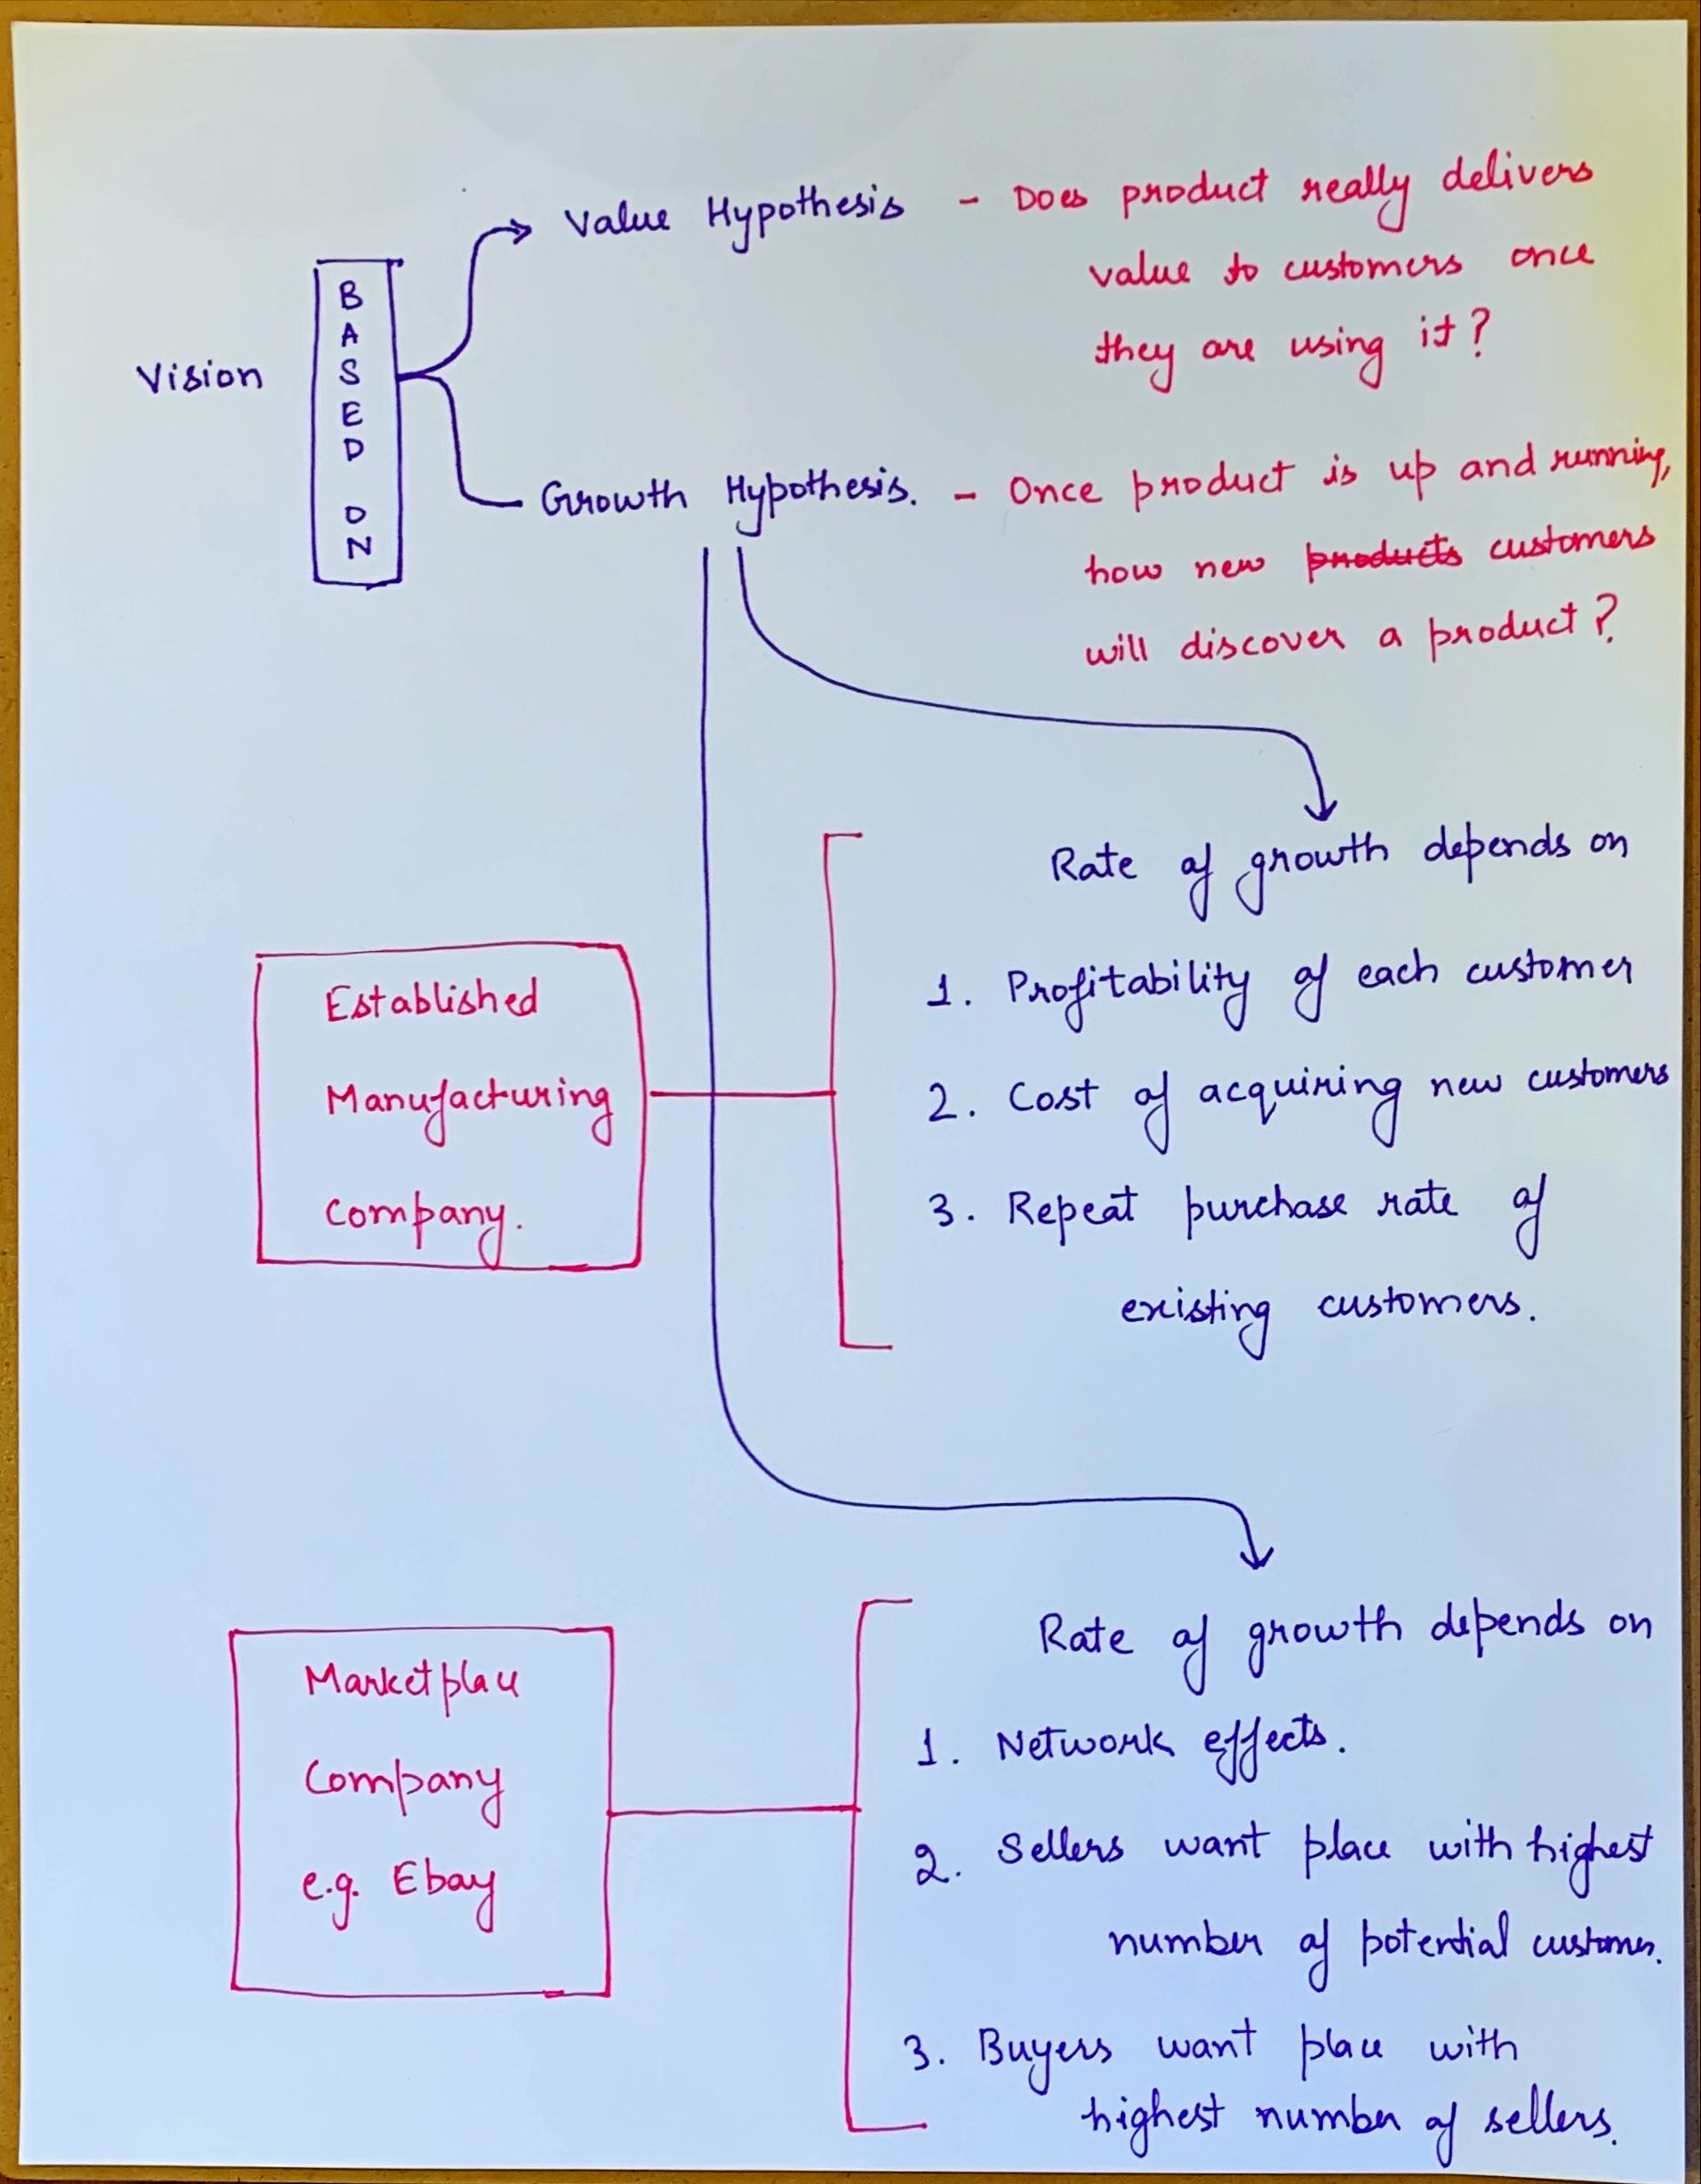 Value Hypothesis - Does product really delivers
value to customers once
they are using it?
Vision
BASED ON
Growth Hypothesis. - Once product is up and running,
how new products customers
will discover a product?
Rate of growth depends on
Established
Manufacturing
Company.
1. Profitability of each customer
2. Cost of acquiring new customers
3. Repeat purchase rate of
existing customers.
Rate of growth depends on
Marketplace
Company
e.g. Ebay
1. Network effects.
2. Sellers want place with highest
number of potential customers.
3. Buyers want place with
highest number of sellers.